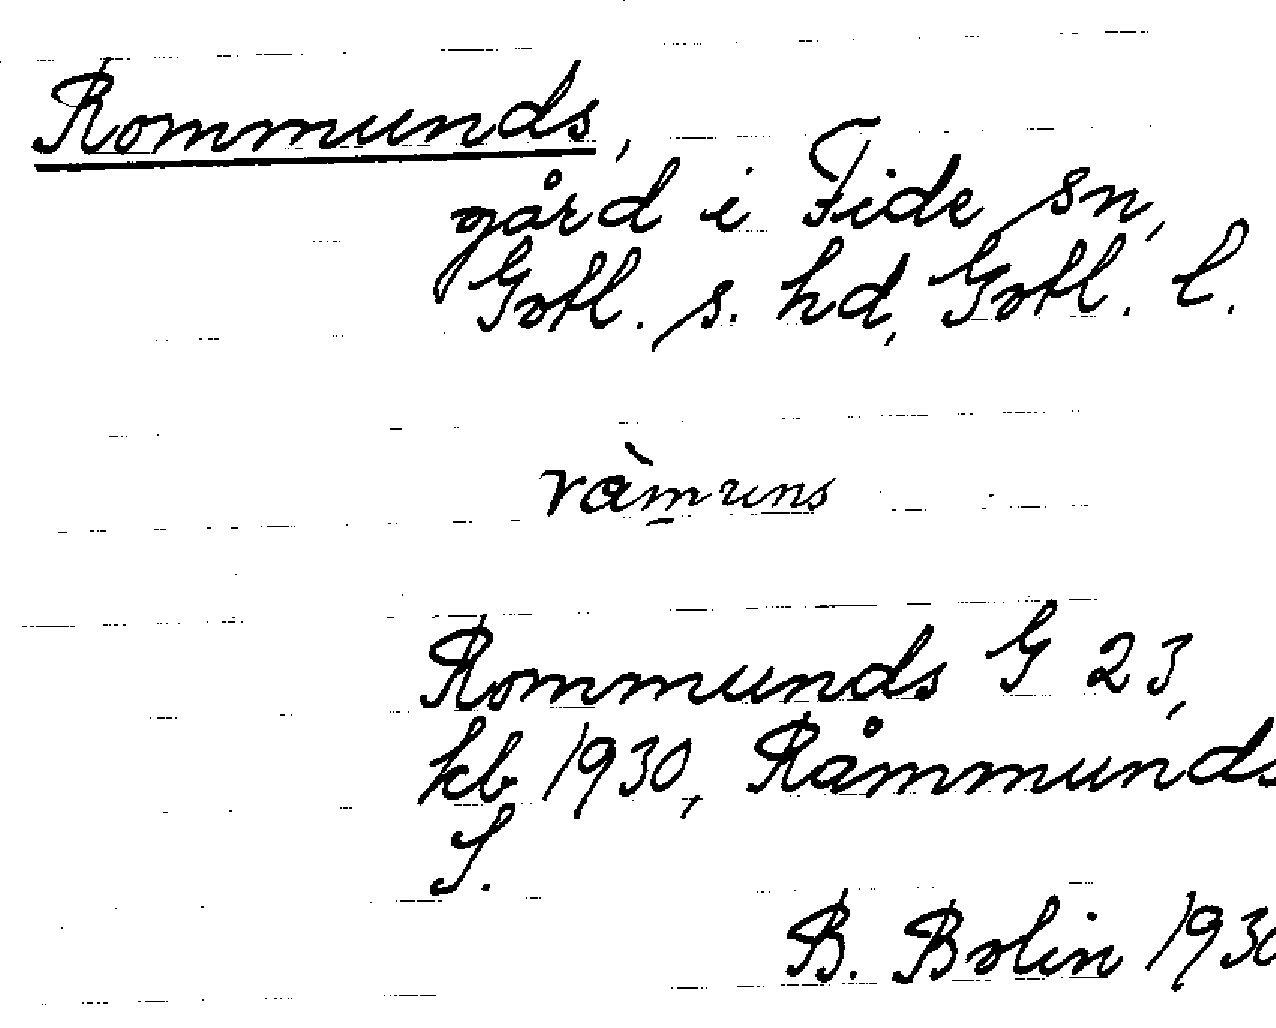 Rommunds,
gård i Fide sn,
Gotl. s. hd, Gotl. l.
ràm̱uns
Rommunds G 23,
kb 1930, Råmmunds
S.
B. Bolin 1930